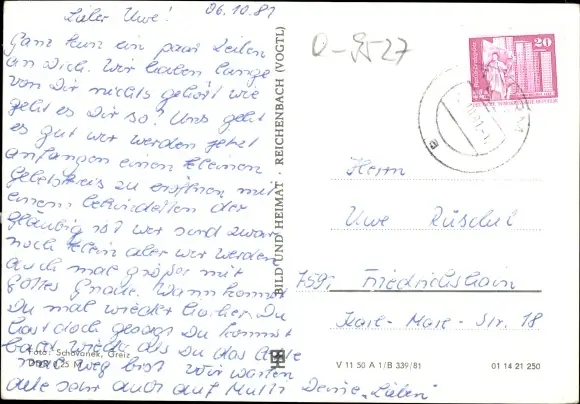 Lieber Uwe! 06.10.81
Ganz kurz ein paar Zeilen
an Dich. Wir haben lange
von Dir nichts gehört wie
geht es Dir so? Uns geht
es gut wir werden jetzt
anfangen einen kleinen
Gebetskreis zu eröffnen mit
einem behinderten der
gläubig ist wir sind zwar
noch klein aber wir werden
auch mal größer mit
Gottes Gnade. Wann kommst
Du mal wieder hierher. Du
hast doch gesagt Du kommst
bald wieder als Du das
mal weg bist Wir warten
alle sehr auch auf Mutti Deine „Lieben"
Foto: Schovanek, Greiz
BILD UND HEIMAT · REICHENBACH (VOGTL)
0-9527
20
Herrn
Uwe Rüschel
7591 Friedrichshain
Karl-Marx-Str. 18
V 11 50 A 1/B 339/81
01 14 21 250